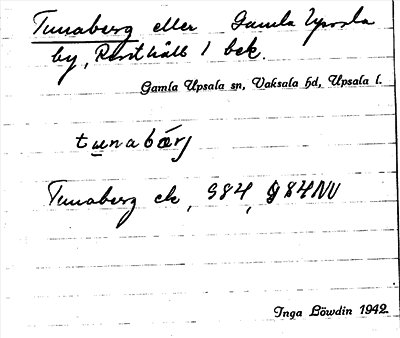 Tunaberg eller Gamla Upsala
by, 1 bek.
Gamla Upsala sn, Vaksala hd, Upsala l.
tunabærj
Tunaberg ek, 984, 984NV
Inga Löwdin 1942